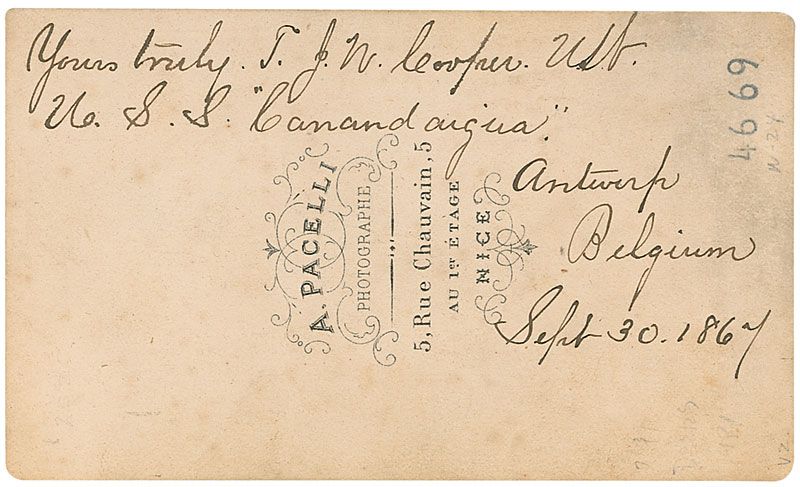 Yours truly. T. J. W. Cooper. USN.
U. S. S. "Canandaigua".
Antwerp
Belgium
Sept 30. 1867
A. PACELLI
PHOTOGRAPHE
5, Rue Chauvain, 5
AU 1ER ÉTAGE
NICE
4669
N-24
VZ.